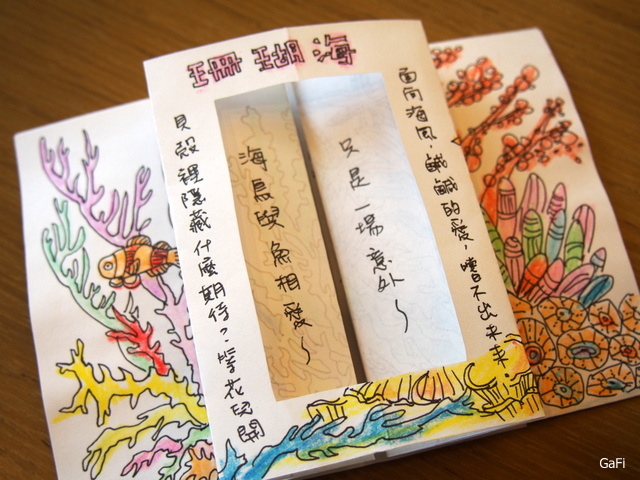 珊瑚海
貝殼裡隱藏什麼期待?等花兒開
海鳥與魚相愛~
只是一場意外~
面向海風,鹹鹹的愛,嚐不出未來
GaFi